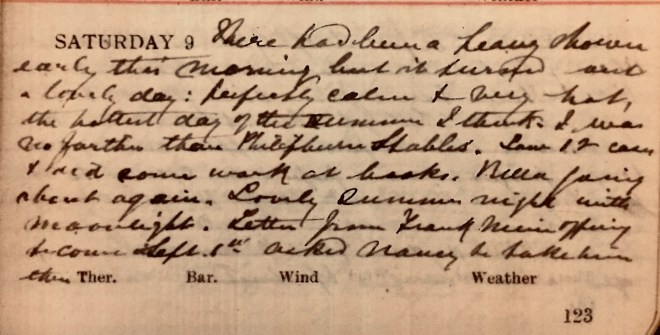 SATURDAY 9 There had been a heavy shower
early this morning but it turned out
a lovely day: perfectly calm & very hot,
the hottest day of the summer I think. I was
no farther than Philiphburn Stables. Saw 12 cases
& did some work at books. Bella going
about again. Lovely summer night with
moonlight. Letter from Frank Muir offering
to come Sept. 1st asked Nancy to take him
then Ther. Bar. Wind Weather
123